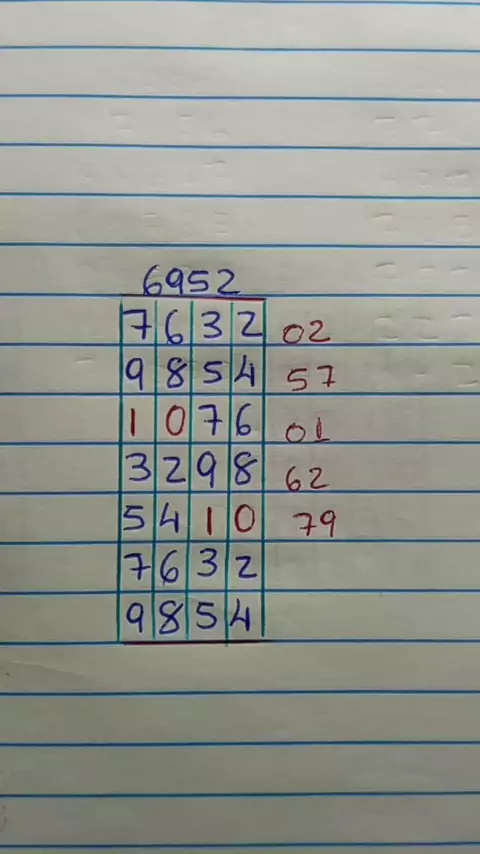 6952
7 6 3 2 02
9 8 5 4 57
1 0 7 6 01
3 2 9 8 62
5 4 1 0 79
7 6 3 2
9 8 5 4